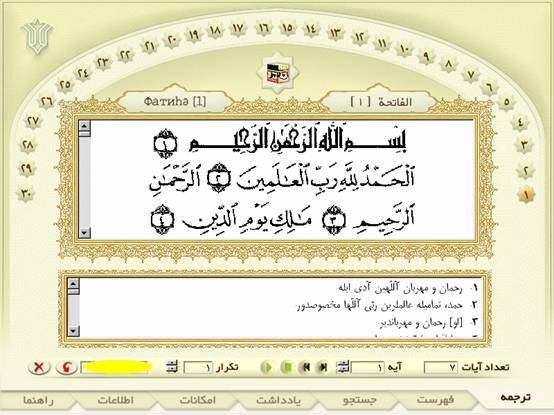 ۱ ۲ ۳ ۴ ۵ ۶ ۷ ۸ ۹ ۱۰ ۱۱ ۱۲ ۱۳ ۱۴ ۱۵ ۱۶ ۱۷ ۱۸ ۱۹ ۲۰ ۲۱ ۲۲ ۲۳ ۲۴ ۲۵ ۲۶ ۲۷ ۲۸ ۲۹ ۳۰
الفاتحة [ ۱ ]
Фатиһә [1]
بِسْمِ اللَّهِ الرَّحْمَٰنِ الرَّحِيمِ ۱
الْحَمْدُ لِلَّهِ رَبِّ الْعَالَمِينَ ۲ الرَّحْمَٰنِ
الرَّحِيمِ ۳ مَالِكِ يَوْمِ الدِّينِ ۴
۱- رحمان و مهربان آللهین آدی ایله
۲- حمد، تمامیله عالملرین ربّی آللها مخصوصدور
۳- [او] رحمان و مهرباندیر
تعداد آیات ۷ آیه ۱ تکرار ۱
ترجمه فهرست جستجو یادداشت امکانات اطلاعات راهنما